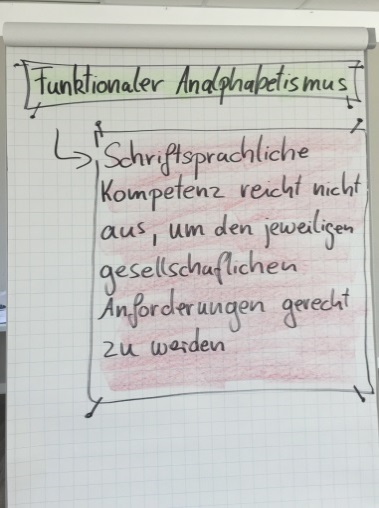 Funktionaler Analphabetismus
Schriftsprachliche
Kompetenz reicht nicht
aus, um den jeweiligen
gesellschaftlichen
Anforderungen gerecht
zu werden